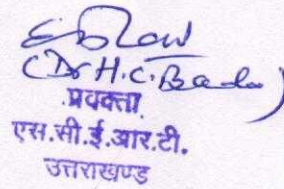 (Dr H.C.
प्रवक्ता
एस.सी.ई.आर.टी.
उत्तराखण्ड